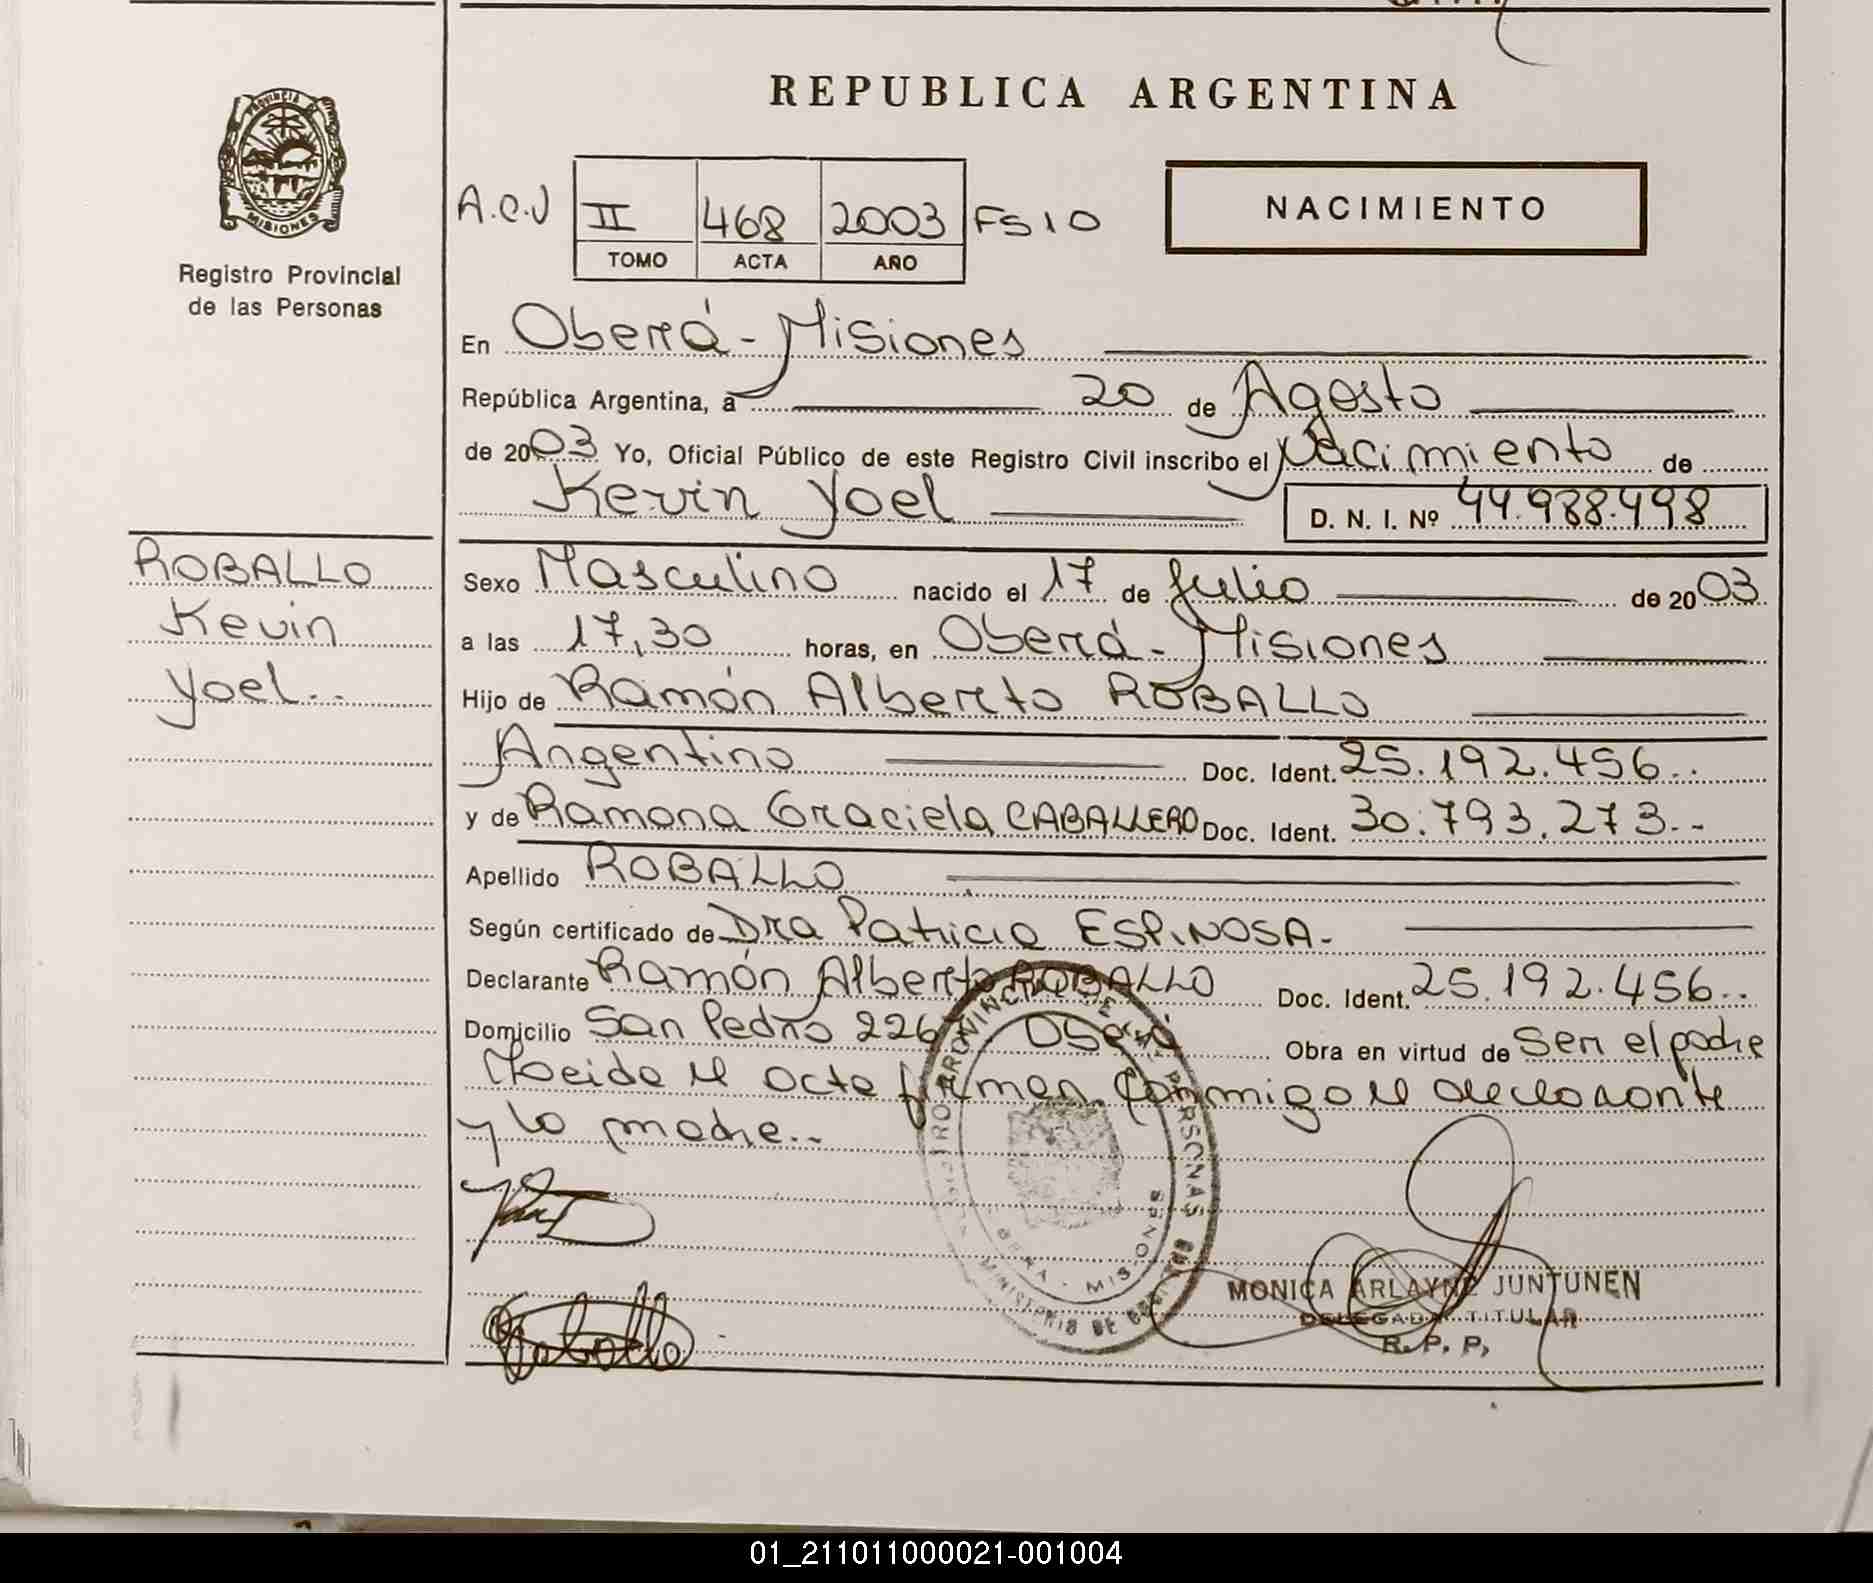 REPUBLICA ARGENTINA
PROVINCIA DE
MISIONES
Registro Provincial
de las Personas
A.C.V II 468 2003 FS 10
TOMO ACTA AÑO
NACIMIENTO
En Oberá - Misiones
República Argentina, a 20 de Agosto
de 2003 Yo, Oficial Público de este Registro Civil inscribo el Nacimiento de
Kevin Yoel D. N. I. Nº 44.988.498
ROBALLO
Kevin
Yoel..
Sexo Masculino nacido el 17 de Julio de 2003
a las 17,30 horas, en Oberá - Misiones
Hijo de Ramón Alberto ROBALLO
Argentino Doc. Ident. 25.192.456..
y de Ramona Graciela CABALLERO Doc. Ident. 30.793.273..
Apellido ROBALLO
Según certificado de Dra Patricia ESPINOSA.
Declarante Ramón Alberto ROBALLO Doc. Ident. 25.192.456..
Domicilio San Pedro 226 Oberá Obra en virtud de Ser el padre
Leida el acta firman conmigo el declarante
y la madre..
PROVINCIAL DE LAS PERSONAS
MISIONES
MINISTERIO DE
Roballo
MONICA ARLAYNE JUNTUNEN
DELEGADA TITULAR
R. P. P.
01_211011000021-001004